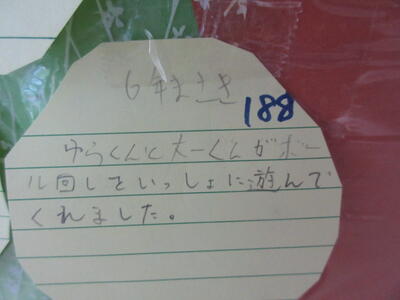 6年まさき
188
ゆらくんと大一くんがボー
ル回しをいっしょに遊んで
くれました。